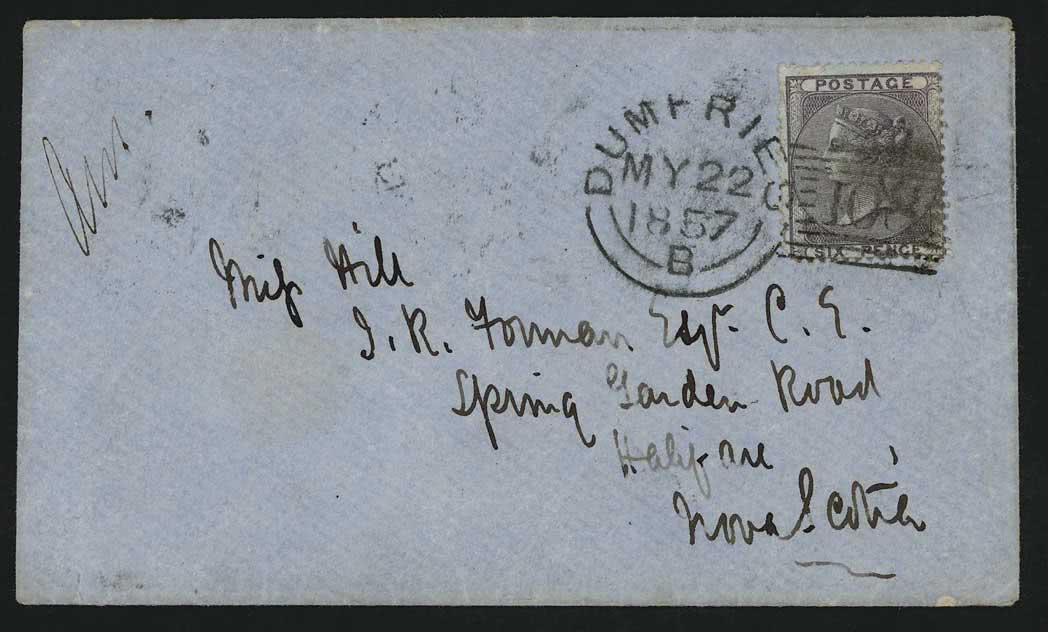 POSTAGE
SIX PENCE
DUMFRIES
MY 22
1857
B
Miss Hill
J. R. Forman Esqr. C. E.
Spring Garden Road
Halifax
Nova Scotia